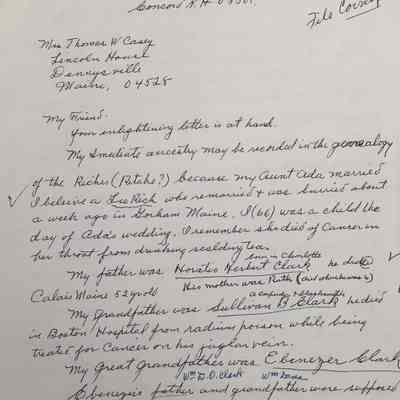 Concord N.H. 03301
File Corresp
Mrs Thomas W Casey
Lincoln House
Dennysville
Maine, 04628
My Friend.
Your enlightening letter is at hand.
My Imediate ancestry may be recorded in the genealogy
of the Riches (Ritche?) because my Aunt Ada married
I beleive a Lee Rich who remarried & was burried about
a week ago in Gorham Maine. I (66) was a child the
day of Ada's wedding. I remember she died of Cancer on
her throat from drinking scalding tea.
born in Charlotte
My father was Horatio Herbert Clark he died
Calais Maine 52 yr old His mother was Ruth
a carpenter &
My Grandfather was Sullivan B Clark he died
in Boston Hospital from radium poison while being
treated for Cancer on his juglar vein.
My Great Grandfather was Ebenezer Clark
Wm D. O. Clark Wm
Ebenezer's father and grandfather were supposed